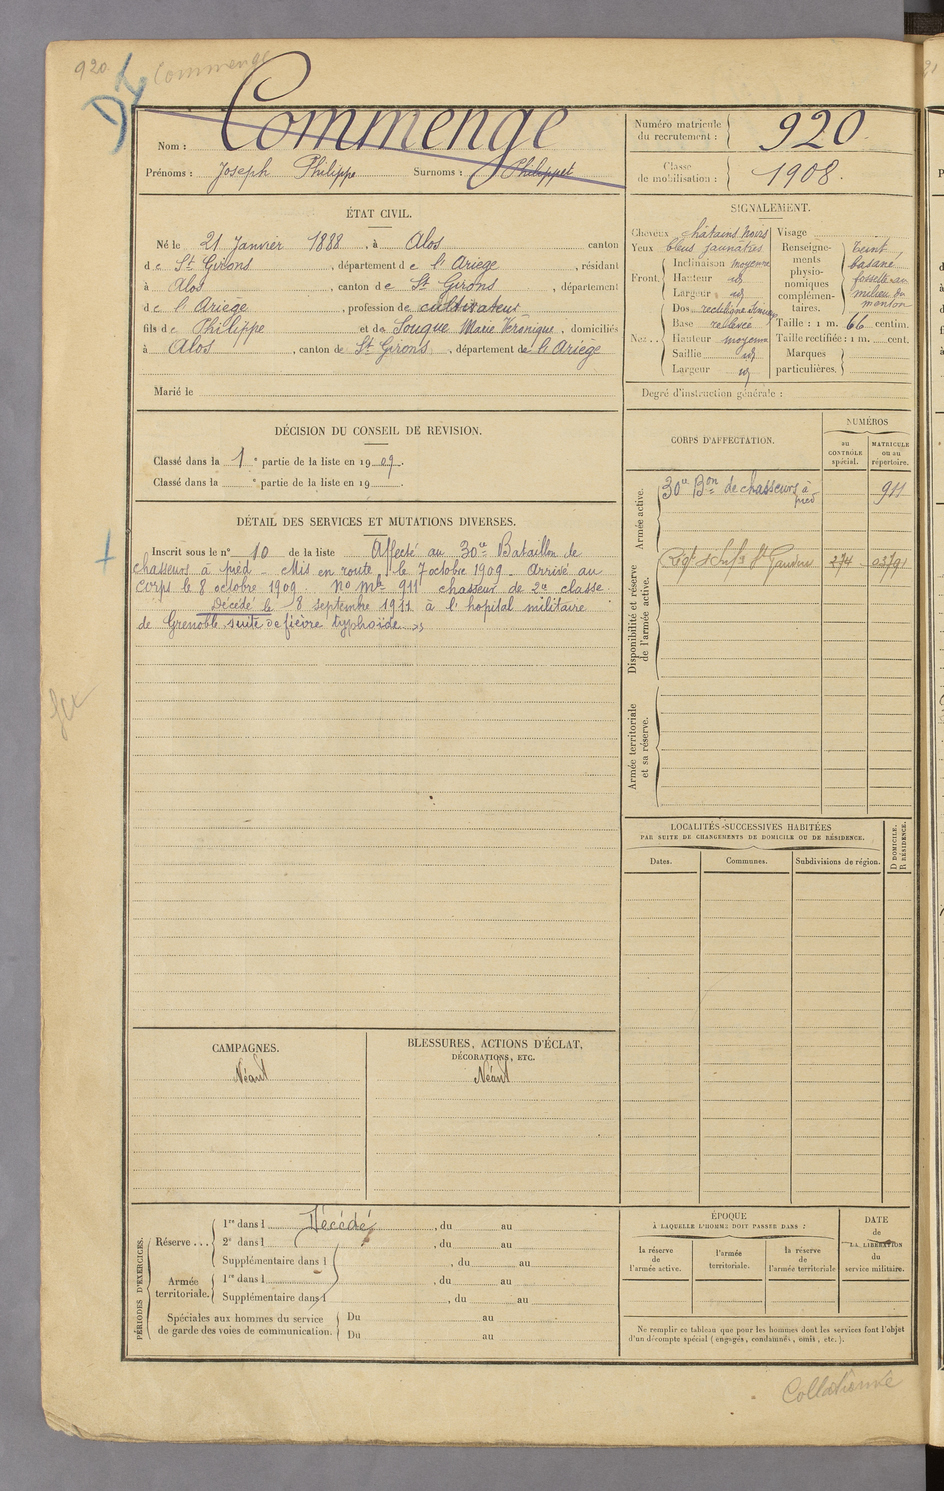 920. Commenge
DZ
Nom : Commenge
Prénoms : Joseph Philippe Surnoms : Philippet
Numéro matricule du recrutement : 920
Classe de mobilisation : 1908.
ÉTAT CIVIL.
Né le 21 Janvier 1888, à Alos canton
de St Girons, département de l'Ariège, résidant
à Alos, canton de St Girons, département
de l'Ariège, profession de cultivateur
fils de Philippe et de Souque Marie Véronique, domiciliés
à Alos, canton de St Girons, département de l'Ariège
Marié le
SIGNALEMENT.
Cheveux châtains noirs
Yeux bleus jaunâtres
Front. Inclinaison moyenne
Hauteur id
Largeur id
Nez... Dos rectiligne sinueux
Base relevée
Hauteur moyenne
Saillie id
Largeur id
Visage
Renseignements physionomiques complémentaires. Teint basané fossette au milieu du menton
Taille : 1 m. 66 centim.
Taille rectifiée : 1 m. cent.
Marques particulières.
Degré d'instruction générale :
DÉCISION DU CONSEIL DE REVISION.
Classé dans la 1e partie de la liste en 1909.
Classé dans la e partie de la liste en 19 .
DÉTAIL DES SERVICES ET MUTATIONS DIVERSES.
Inscrit sous le n° 10 de la liste Affecté au 30e Bataillon de
chasseurs à pied – Mis en route le 7 octobre 1909 – Arrivé au
corps le 8 octobre 1909. No mle 911 chasseur de 2e classe.
Décédé le 8 septembre 1911 à l'hopital militaire
de Grenoble, suite de fièvre typhoïde
CORPS D'AFFECTATION.
NUMÉROS
au CONTRÔLE spécial.
MATRICULE ou au répertoire.
Armée active.
30e Bon de chasseurs à pied 911
Disponibilité et réserve de l'armée active.
Rgt d'Infie St Gaudens 274 03791
Armée territoriale et sa réserve.
LOCALITÉS SUCCESSIVES HABITÉES
PAR SUITE DE CHANGEMENTS DE DOMICILE OU DE RÉSIDENCE.
Dates. Communes. Subdivisions de région. D DOMICILE. R RÉSIDENCE.
CAMPAGNES.
Néant
BLESSURES, ACTIONS D'ÉCLAT,
DÉCORATIONS, ETC.
Néant
PÉRIODES D'EXERCICES.
Réserve... 1re dans l Décédé, du au
2e dans l , du au
Supplémentaire dans l , du au
Armée territoriale. 1re dans l , du au
Supplémentaire dans l , du au
Spéciales aux hommes du service de garde des voies de communication. Du au
Du au
ÉPOQUE
À LAQUELLE L'HOMME DOIT PASSER DANS :
la réserve de l'armée active.
l'armée territoriale.
la réserve de l'armée territoriale
DATE de LA LIBÉRATION du service militaire.
Ne remplir ce tableau que pour les hommes dont les services font l'objet
d'un décompte spécial (engagés, condamnés, omis, etc.).
Collationné